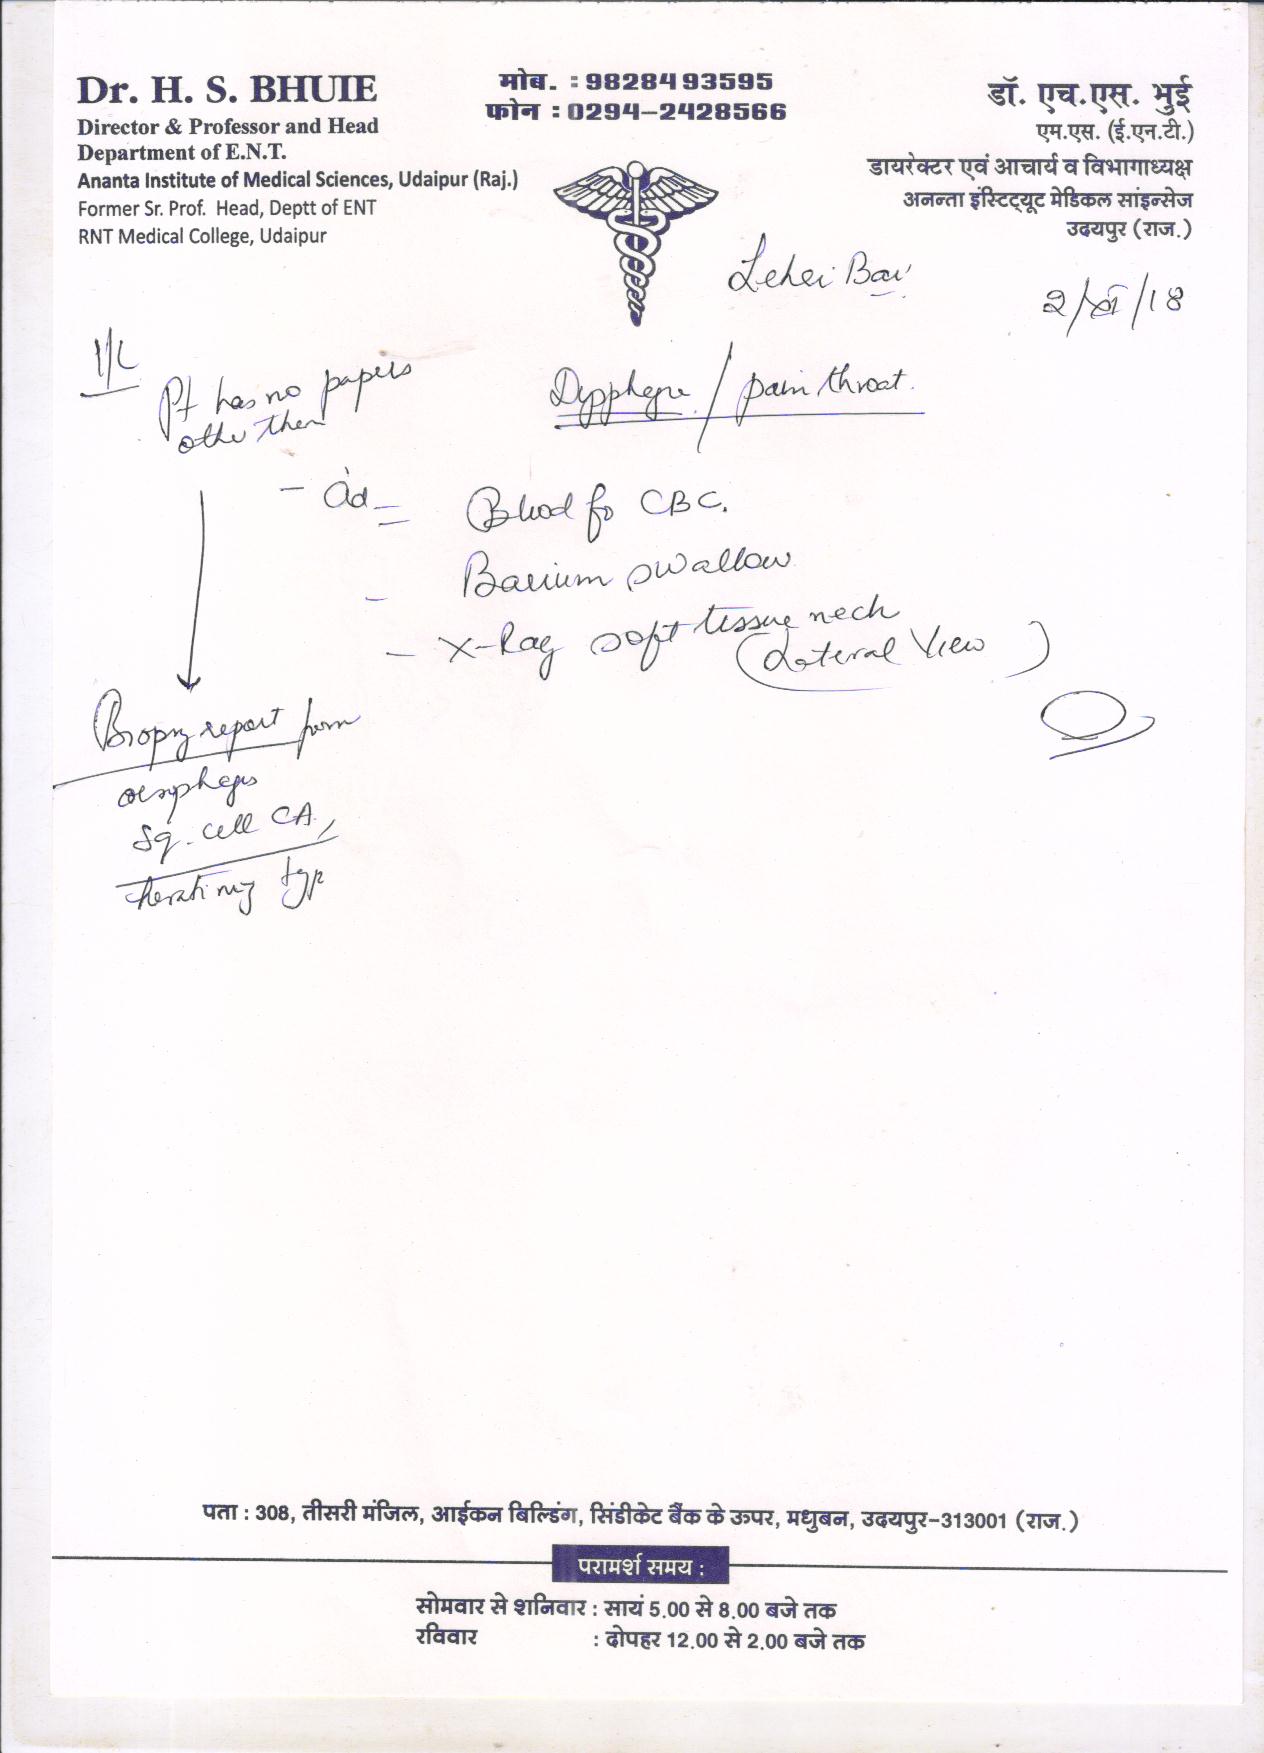 Dr. H. S. BHUIE
Director & Professor and Head
Department of E.N.T.
Ananta Institute of Medical Sciences, Udaipur (Raj.)
Former Sr. Prof. Head, Deptt of ENT
RNT Medical College, Udaipur
मोब. : 9828493595
फोन : 0294-2428566
डॉ. एच.एस. भुई
एम.एस. (ई.एन.टी.)
डायरेक्टर एवं आचार्य व विभागाध्यक्ष
अनन्ता इंस्टिट्यूट मेडिकल सांइन्सेज
उदयपुर (राज.)
Bai
2/XI/18
Pt has no papers
other then
/ pain throat.
- Ad
Blood for CBC.
- Barium swallow
- X-Ray soft tissue neck
(Lateral View)
Biopsy report from
oesophagus
Sq. cell CA,
Keratinizing type
पता : 308, तीसरी मंजिल, आईकन बिल्डिंग, सिंडीकेट बैंक के ऊपर, मधुबन, उदयपुर-313001 (राज.)
परामर्श समय :
सोमवार से शनिवार : सायं 5.00 से 8.00 बजे तक
रविवार : दोपहर 12.00 से 2.00 बजे तक